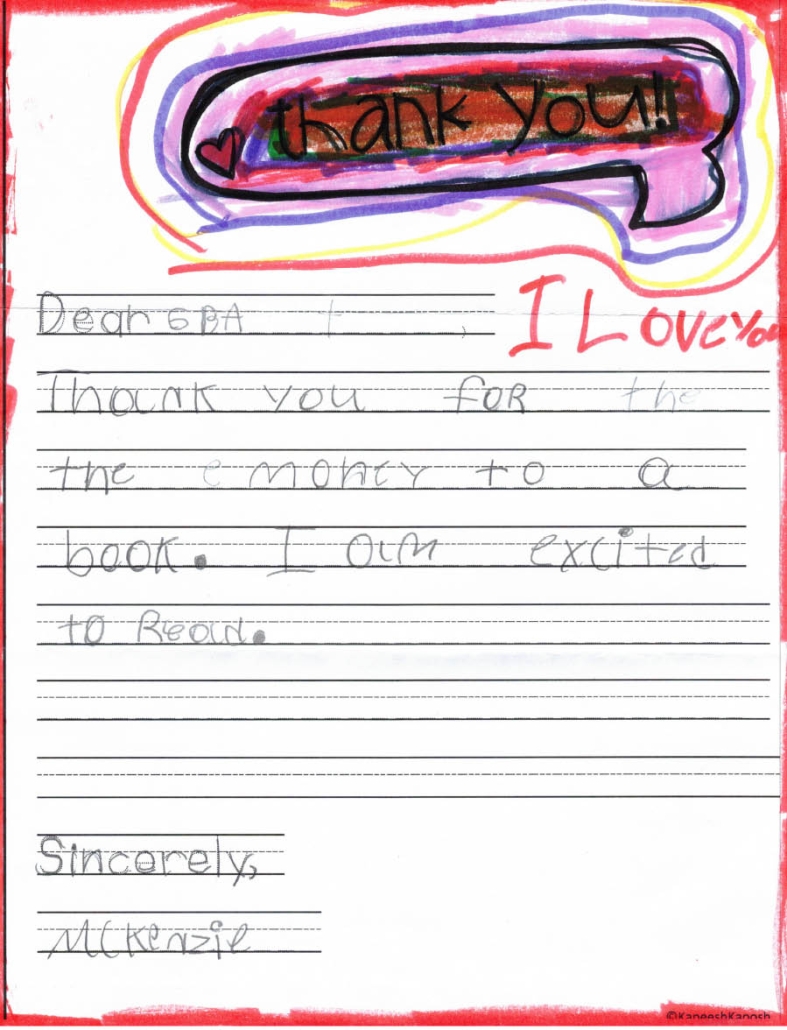 thank you!!
I Love You
Dear GBA ,
thank you for the
the e money to a
book. I am excited
to Read.
Sincerely,
McKenzie
©KaneeshKanosh